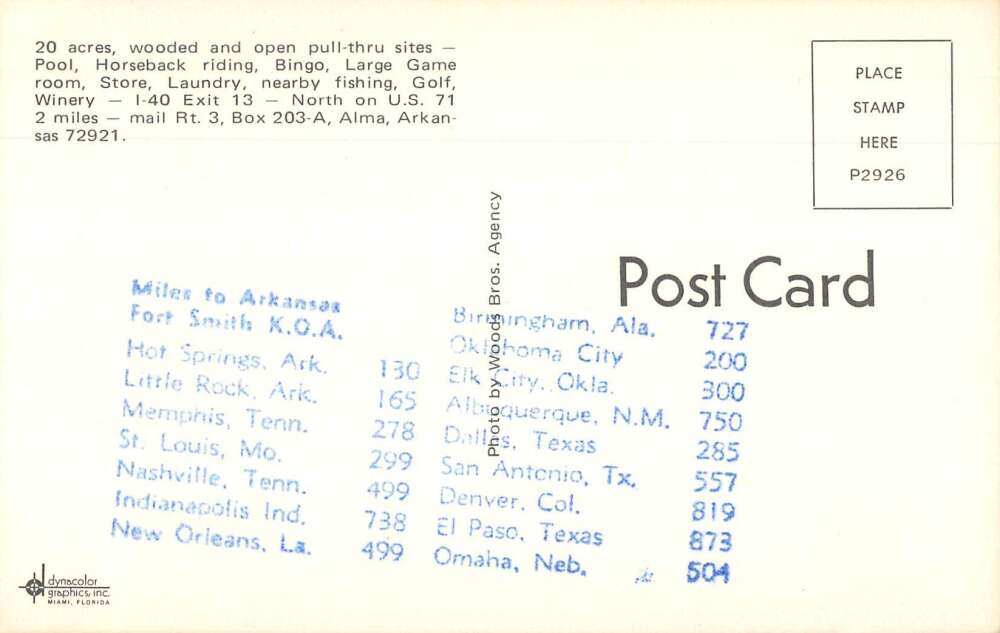 20 acres, wooded and open pull-thru sites —
Pool, Horseback riding, Bingo, Large Game
room, Store, Laundry, nearby fishing, Golf,
Winery — I-40 Exit 13 — North on U.S. 71
2 miles — mail Rt. 3, Box 203-A, Alma, Arkan-
sas 72921.
PLACE
STAMP
HERE
P2926
Photo by Woods Bros. Agency
Post Card
Miles to Arkansas
Fort Smith K.O.A.
Hot Springs, Ark. 130
Little Rock, Ark. 165
Memphis, Tenn. 278
St. Louis, Mo. 299
Nashville, Tenn. 499
Indianapolis Ind. 738
New Orleans, La. 499
Birmingham, Ala. 727
Oklahoma City 200
Elk City, Okla. 300
Albuquerque, N.M. 750
Dallas, Texas 285
San Antonio, Tx. 557
Denver, Col. 819
El Paso, Texas 873
Omaha, Neb. 504
dynacolor
graphics, inc.
MIAMI, FLORIDA